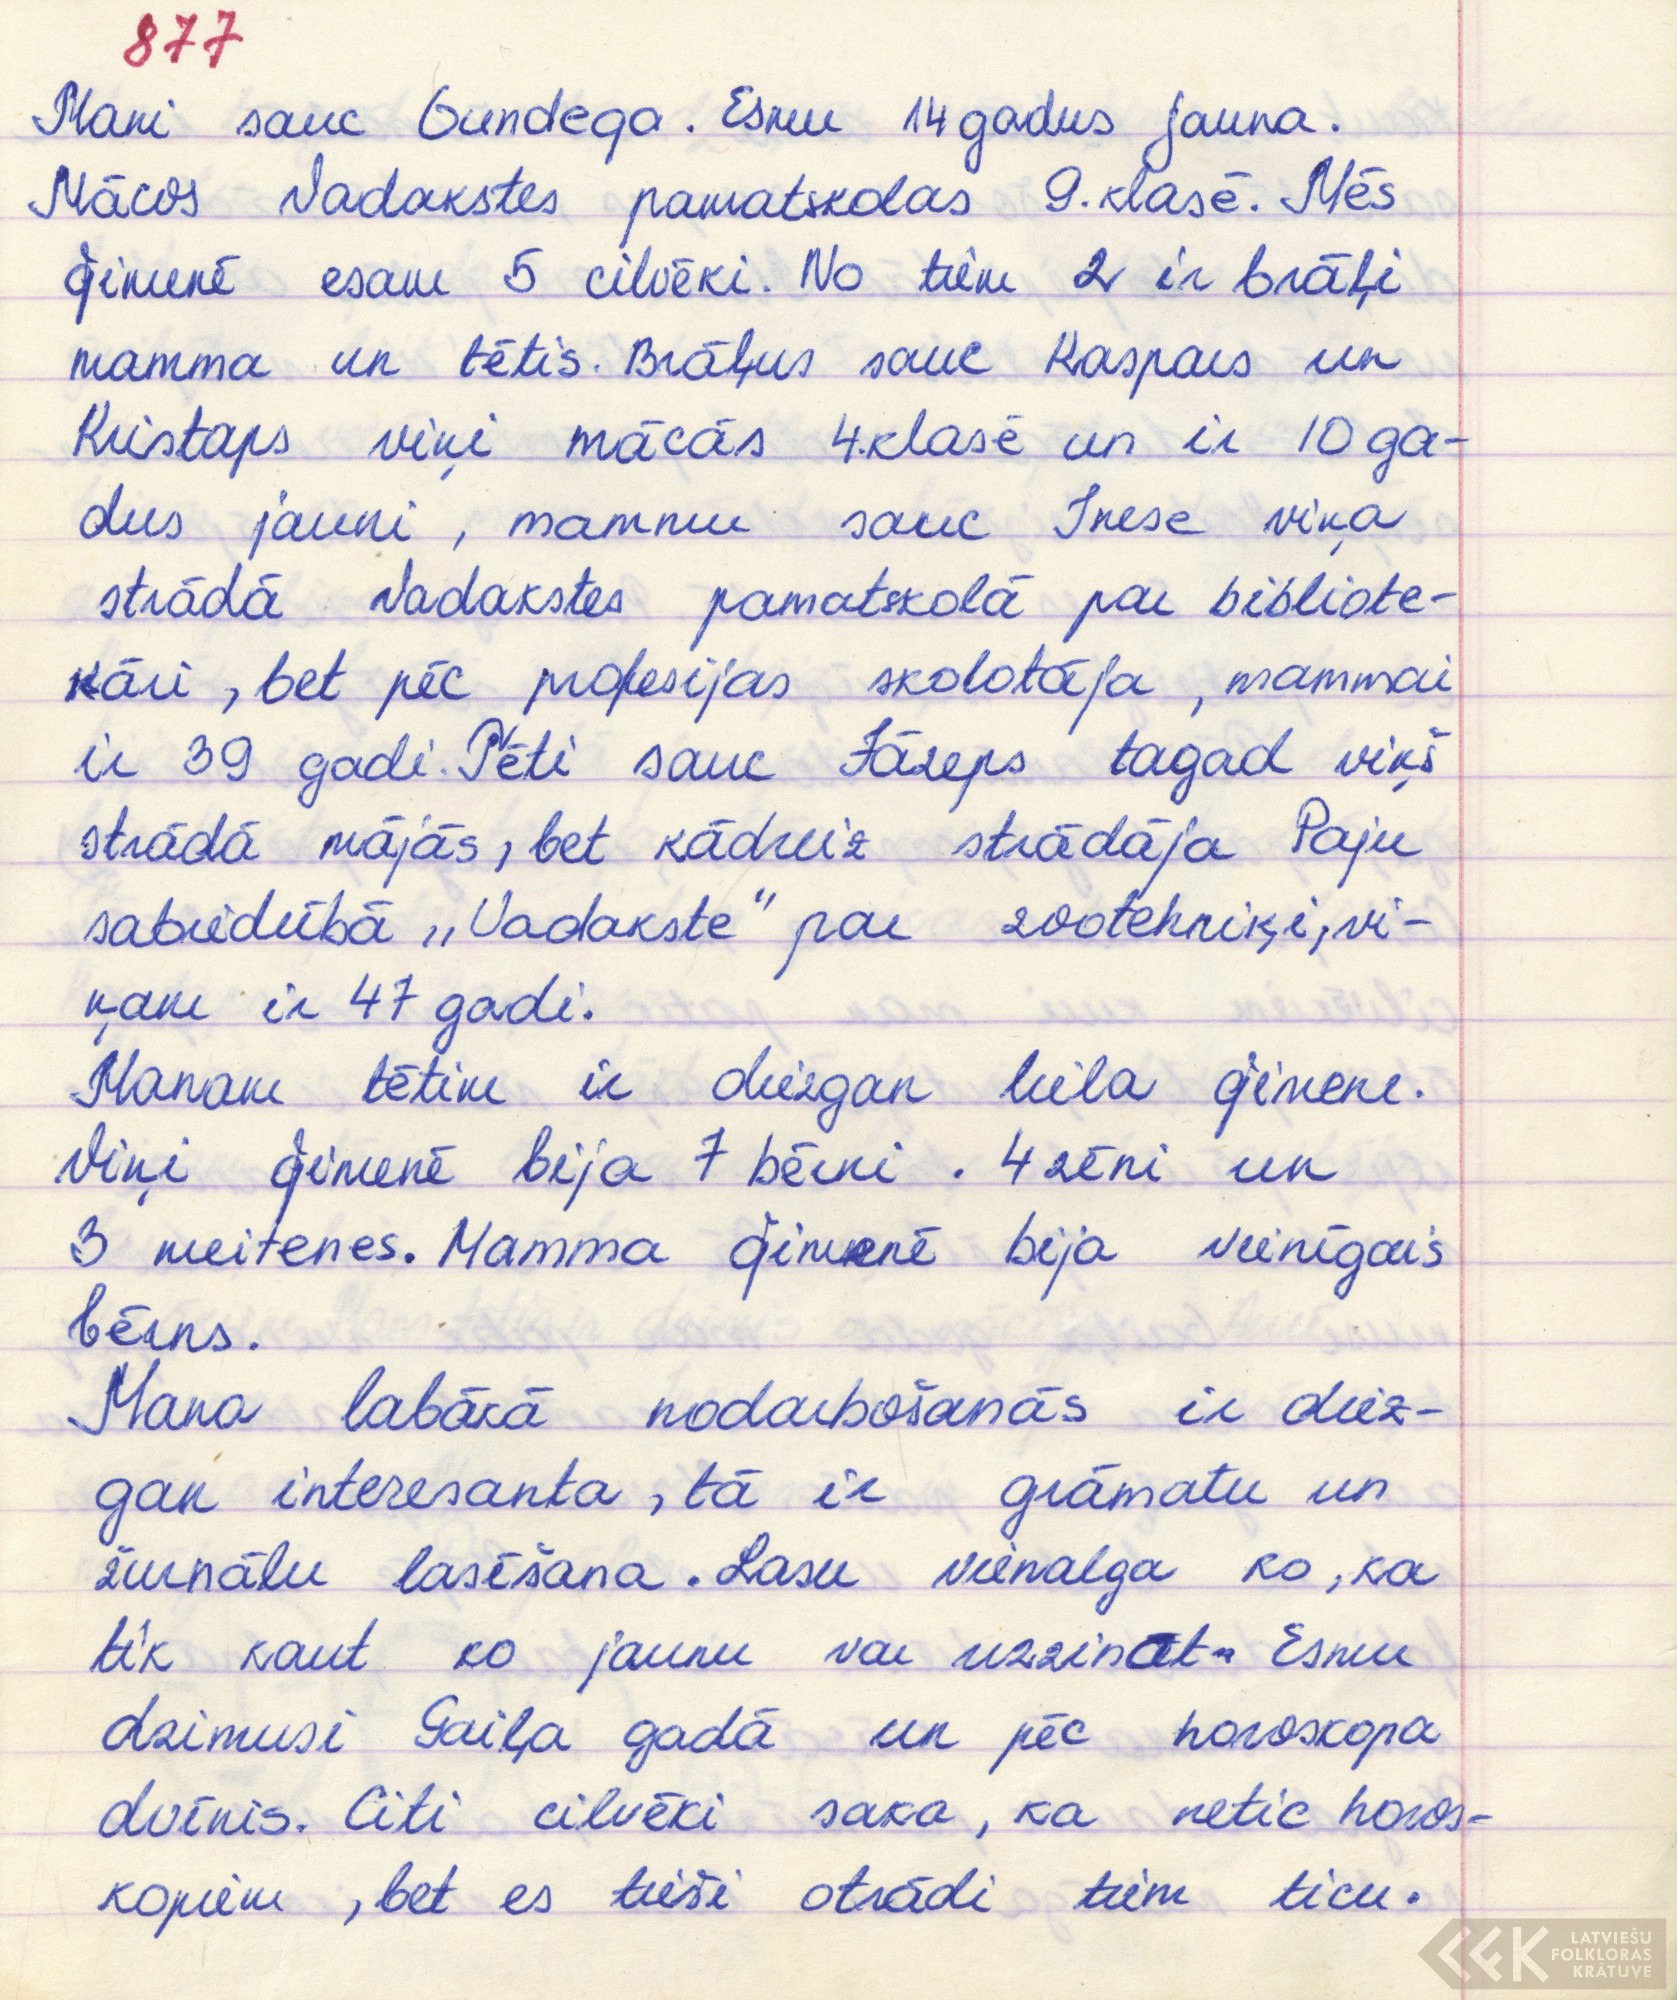 877
Mani sauc Gundega. Esmu 14 gadus jauna.
Mācos Vadakstes pamatskolas 9. klasē. Mēs
ģimenē esam 5 cilvēki. No tiem 2 ir brāļi
mamma un tētis. Brāļus sauc Kaspars un
Kristaps viņi mācās 4. klasē un ir 10 ga-
dus jauni, mammu sauc Inese viņa
strādā Vadakstes pamatskolā par bibliote-
kāri, bet pēc profesijas skolotāja, mammai
ir 39 gadi. Tēti sauc Jāzeps tagad viņš
strādā mājās, bet kādreiz strādāja Paju
sabiedrībā „Vadakste" par zootehniķi, vi-
ņam ir 47 gadi.
Manam tētim ir diezgan liela ģimene.
Viņi ģimenē bija 7 bērni. 4 zēni un
3 meitenes. Mamma ģimenē bija vienīgais
bērns.
Mana labākā nodarbošanās ir diez-
gan interesanta, tā ir grāmatu un
žurnālu lasīšana. Lasu vienalga ko, ka
tik kaut ko jaunu var uzzināt. Esmu
dzimusi Gaiļa gadā un pēc horoskopa
dvīnis. Citi cilvēki saka, ka netic horos-
kopiem, bet es tieši otrādi tiem ticu.
LATVIEŠU
FOLKLORAS
KRĀTUVE